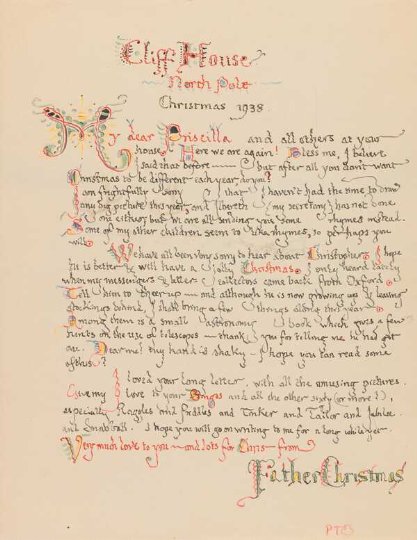 Cliff House
North Pole
Christmas 1938
My dear Priscilla and all others at your
house. Here we are again! Bless me, I believe
I said that before — but after all you don't want
Christmas to be different each year, do you?
I am frightfully sorry that I haven't had the time to draw
any big picture this year, and Ilbereth (my secretary) has not done
one either; but we are all sending you some rhymes instead.
Some of my other children seem to like rhymes, so perhaps you
will
We have all been very sorry to hear about Christopher. I hope
he is better & will have a jolly Christmas. I only heard lately
when my messengers & letter collectors came back from Oxford.
Tell him to cheer up — and although he is now growing up & leaving
stockings behind, I shall bring a few things along this year.
Among them is a small astronomy book which gives a few
hints on the use of telescopes — thank you for telling me he had got
one. Dear me! my hand is shaky — I hope you can read some
of this?
I loved your long letter, with all the amusing pictures.
Give my love to your Bingos and all the other sixty (or more?),
especially Raggles and Preddley and Tinker and Tailor and Jubilee
and Snowball. I hope you will go on writing to me for a long while yet.
Very much love to you — and lots for Chris — from
Father Christmas
P.T.O